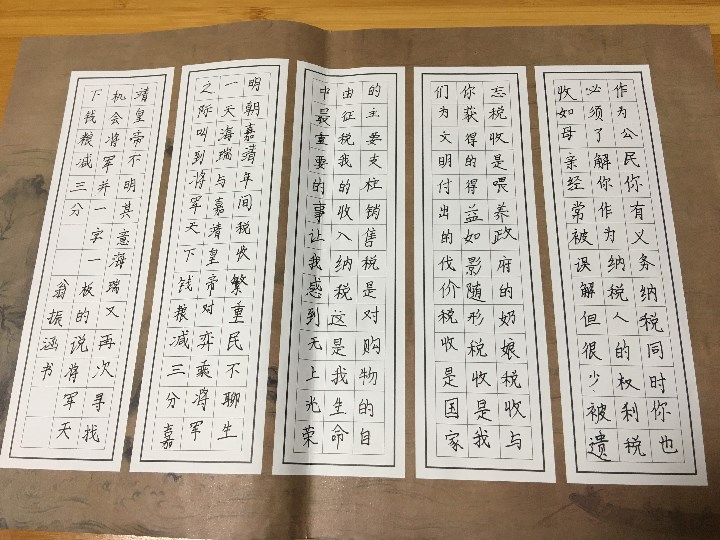 作为公民你有义务纳税同时你也
必须了解你作为纳税人的权利税
收如母亲经常被误解但很少被遗
忘税收是喂养政府的奶娘税收与
你获得的得益如影随形税收是我
们为文明付出的代价税收是国家
的主要支柱销售税是对购物的自
由征税我的收入纳税这是我生命
中最重要的事让我感到无上光荣
明朝嘉靖年间税收繁重民不聊生
一天海瑞与嘉靖皇帝对弈乘将军
之际叫到将军天下钱粮减三分嘉
靖皇帝不明其意海瑞又再次寻找
机会将军并一字一板的说将军天
下钱粮减三分
翁振涵书